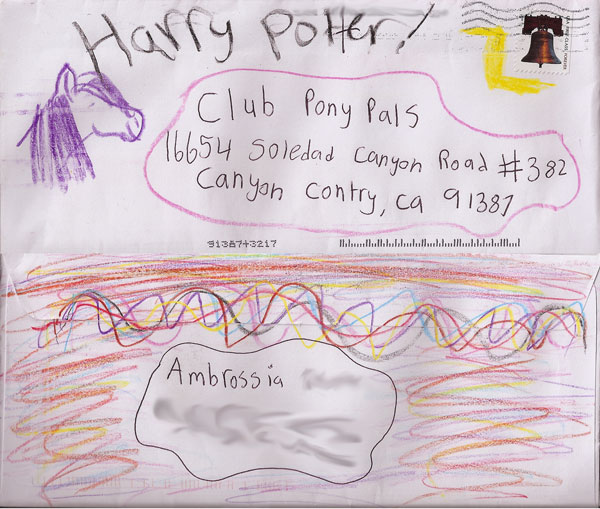 Harry Potter!
Club Pony Pals
16654 Soledad Canyon Road #382
Canyon Contry, Ca 91387
91387+3217
Ambrossia